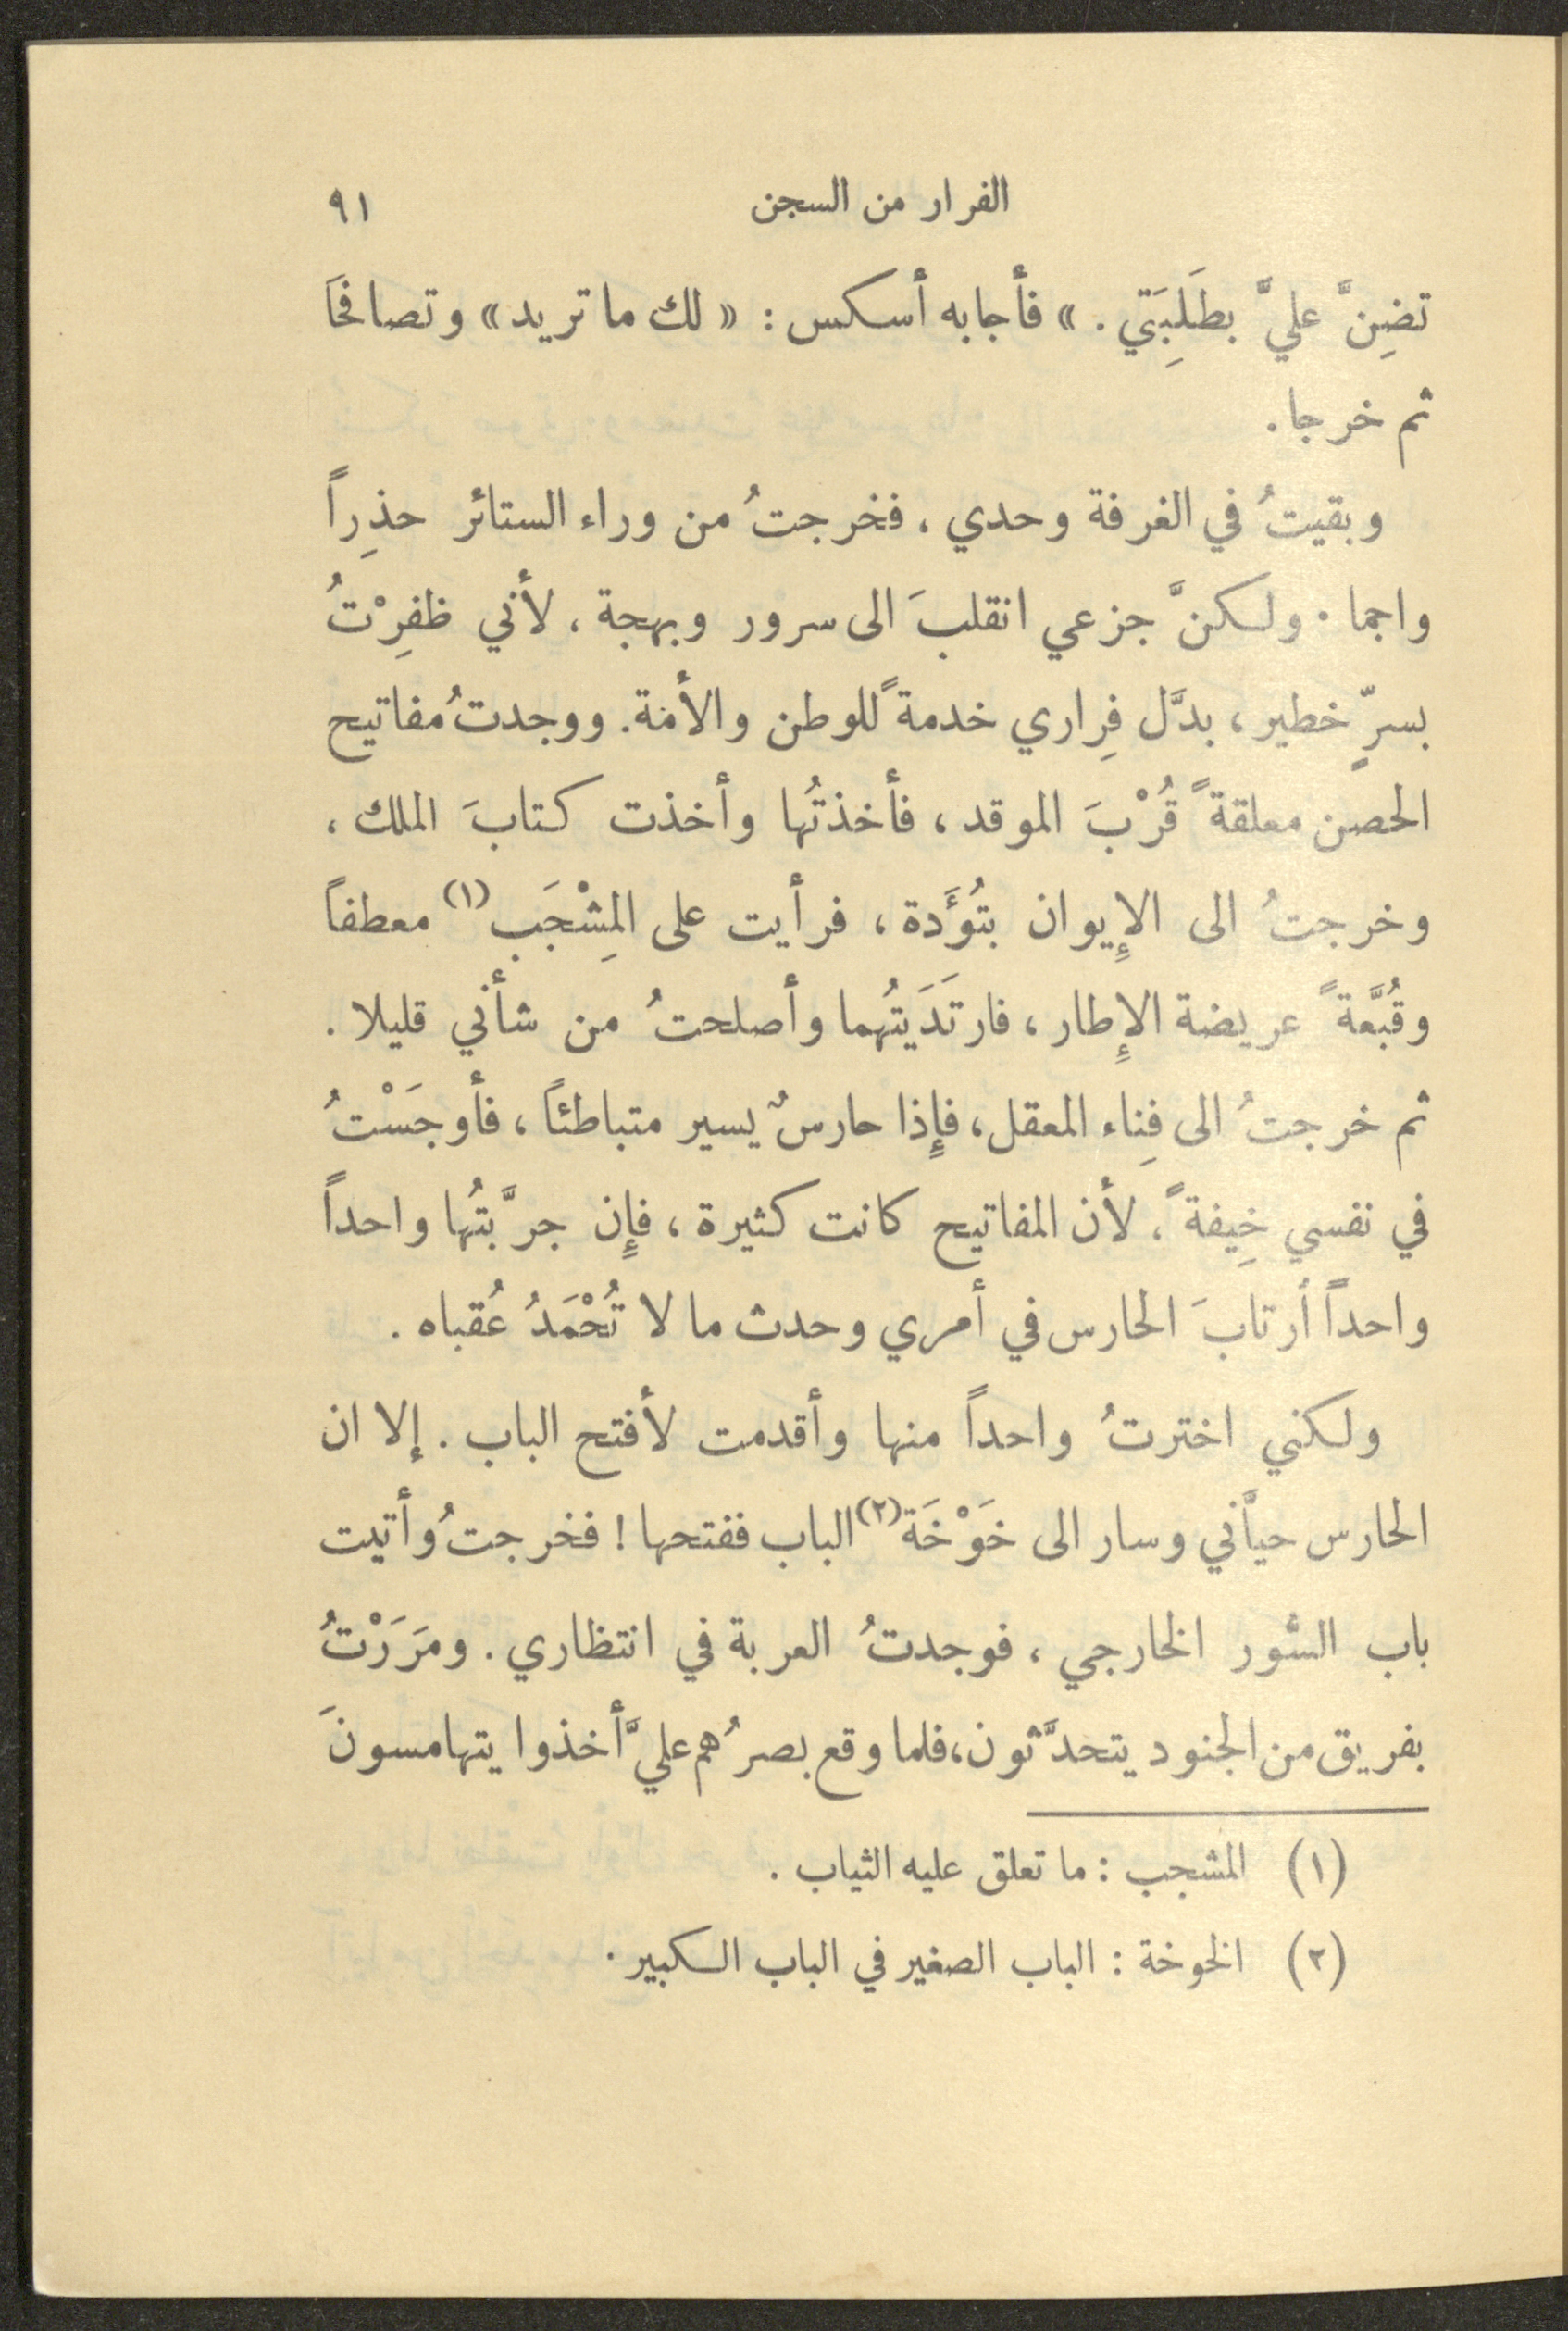 الفرار من السجن ٩١
تضِنَّ عليَّ بطَلِبَتي . » فأجابه أسكس : « لك ما تريد » وتصافحَا
ثم خرجا .
وبقيتُ في الغرفة وحدي ، فخرجتُ من وراء الستائر حذِراً
واجما . ولكنَّ جزعي انقلبَ الى سرور وبهجة ، لأني ظفِرْتُ
بسرٍّ خطير ، بدَّل فِراري خدمةً للوطن والأمة . ووجدتُ مفاتيح
الحصن معلقةً قُرْبَ الموقد ، فأخذتُها وأخذت كتابَ الملك ،
وخرجتُ الى الإِيوان بتُؤَدة ، فرأيت على المِشْجَب (١) معطفاً
وقُبَّعةً عريضة الإِطار ، فارتَدَيتُهما وأصلحتُ من شأني قليلا .
ثم خرجتُ الى فِناء المعقل ، فإِذا حارسٌ يسير متباطئاً ، فأوجَسْتُ
في نفسي خِيفةً ، لأن المفاتيح كانت كثيرة ، فإِن جرَّبتُها واحداً
واحداً أرتابَ الحارس في أمري وحدث ما لا تُحْمَدُ عُقباه .
ولكني اخترتُ واحداً منها وأقدمت لأفتح الباب . إلا ان
الحارس حيَّاني وسار الى خَوْخَة (٢) الباب ففتحها ! فخرجتُ وأتيت
باب السُّور الخارجي ، فوجدتُ العربة في انتظاري . ومَرَرْتُ
بفريق من الجنود يتحدَّثون ، فلما وقع بصرُهم عليَّ أخذوا يتهامسونَ
(١) المشجب : ما تعلق عليه الثياب .
(٢) الخوخة : الباب الصغير في الباب الكبير .